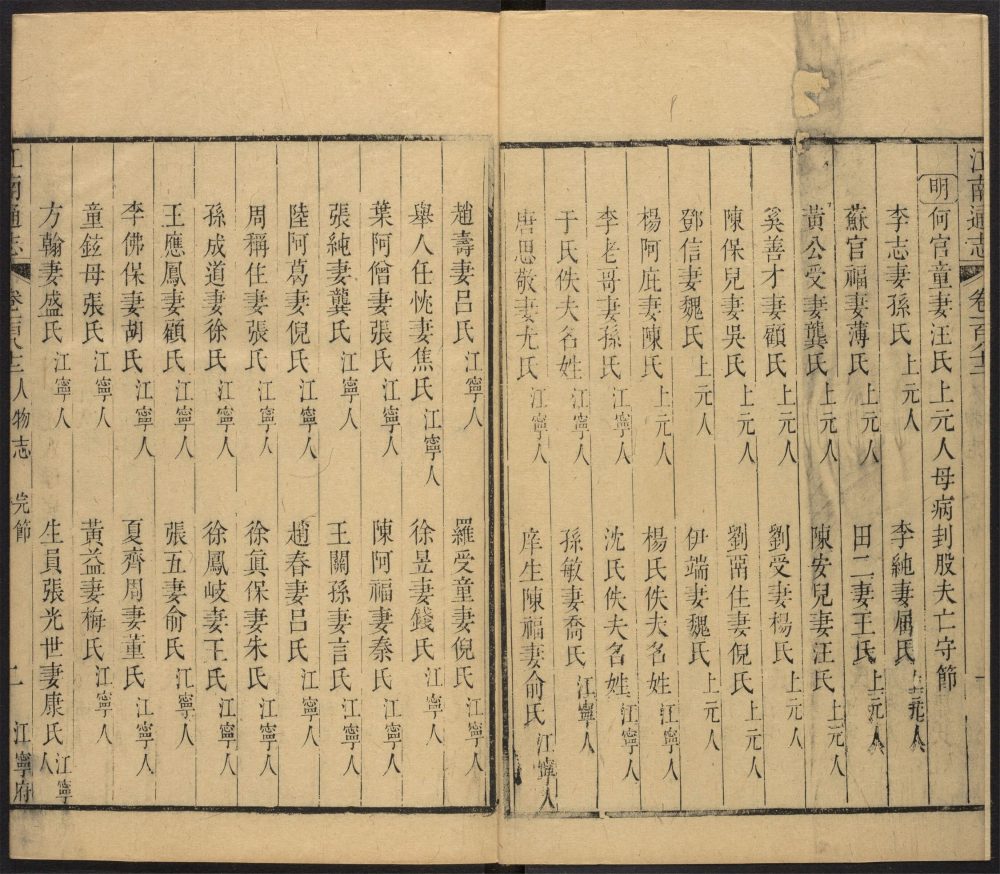 江南通志 卷一百八十三 一
明 何官童妻汪氏上元人母病刲股夫亡守節
李志妻孫氏上元人 李純妻屠氏上元人
蘇官福妻薄氏上元人 田二妻王氏上元人
黃公受妻龔氏上元人 陳安兒妻汪氏上元人
奚善才妻顧氏上元人 劉受妻楊氏上元人
陳保兒妻吳氏上元人 劉兩住妻倪氏上元人
鄧信妻魏氏上元人 伊端妻魏氏上元人
楊阿庇妻陳氏上元人 楊氏佚夫名姓江寧人
李老哥妻孫氏江寧人 沈氏佚夫名姓江寧人
于氏佚夫名姓江寧人 孫敏妻喬氏江寧人
唐思敬妻尤氏江寧人 庠生陳福妻俞氏江寧人
趙壽妻呂氏江寧人 羅受童妻倪氏江寧人
舉人任恍妻焦氏江寧人 徐昱妻錢氏江寧人
葉阿僧妻張氏江寧人 陳阿福妻秦氏江寧人
張純妻龔氏江寧人 王關孫妻言氏江寧人
陸阿葛妻倪氏江寧人 趙春妻呂氏江寧人
周稱住妻張氏江寧人 徐眞保妻朱氏江寧人
孫成道妻徐氏江寧人 徐鳳岐妻王氏江寧人
王應鳳妻顧氏江寧人 張五妻俞氏江寧人
李佛保妻胡氏江寧人 夏齊周妻董氏江寧人
童鉉母張氏江寧人 黃益妻梅氏江寧人
方翰妻盛氏江寧人 生員張光世妻康氏江寧人
江南通志 卷一百八十三人物志 完節 二 江寧府